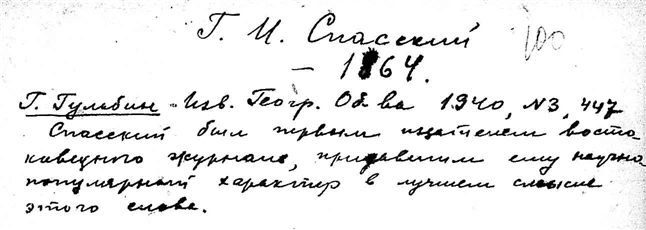 Г. И. Спасский 100
– 1864.
Г. Гульбин Изв. Геогр. Об-ва 1940, №3, 447
Спасский был первым издателем восто-
коведного журнала, придавшим ему научно
популярный характер в лучшем смысле
этого слова.